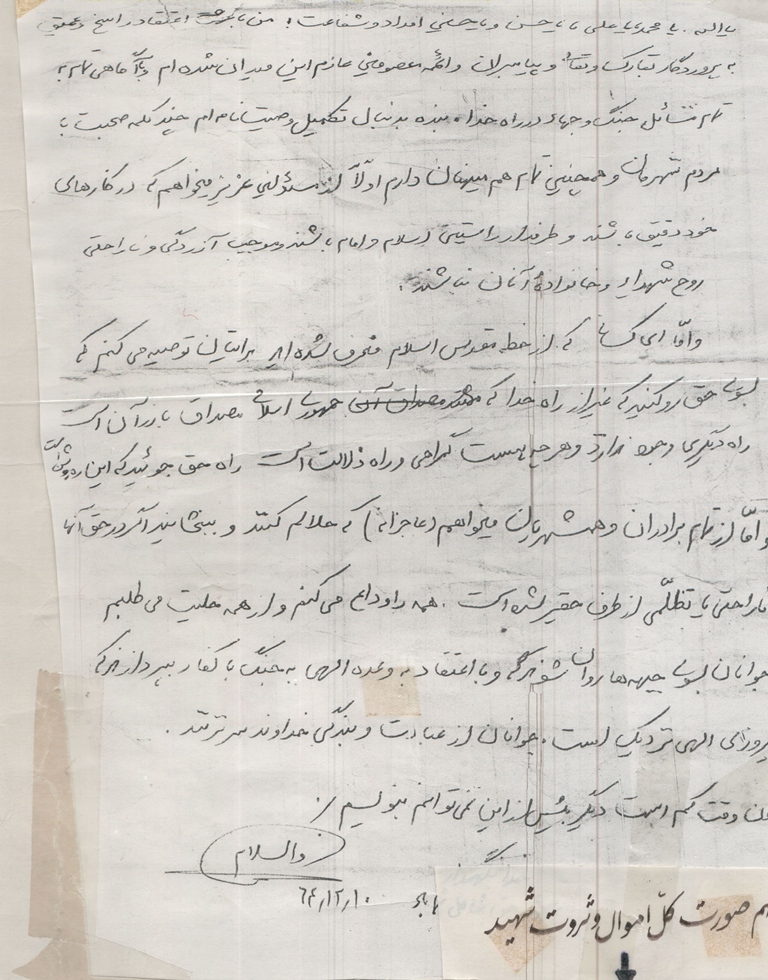 یا الله. یا محمد یا علی یا یا حسن و یا حسین امداد و شفاعت، من با اعتقاد راسخ و عمیق
به پروردگار تبارک و تعالی و پیامبران و ائمه معصومین عازم این میدان شده ام و با آگاهی تمام به
تمام مسائل جنگ و جهاد در راه خدا، بنده بدنبال تکمیل وصیتنامه ام چند کلمه صحبت با
مردم شهرمان و همچنین تمام هم میهنان دارم اولاً از مسئولین عزیز میخواهم که در کارهای
خود دقیق باشند و طرفدار راستین اسلام و امام باشند و موجب آزردگی و ناراحتی
روح شهداء و خانوادهٔ آنان نباشند.
و امّا ای کسانی که از خط مقدس اسلام منحرف شده اید برایتان توصیه می کنم که
بسوی حق رو کنید که غیر از راه خدا که جمهوری اسلامی مصداق بارز آن است
راه دیگری وجود ندارد و هر چه هست گمراهی و راه ذلالت است راه حق جوئید که این ره روشن است
و امّا از تمام برادران و همشهریان میخواهم (عاجزانه) که حلالم کنند و ببخشایند اگر در حق آنها
ناراحتی یا تظلّمی از طرف حقیر شده است. همه را وداع می کنم و از همه حلیت می طلبم
جوانان بسوی جبهه ها روان شوند و با اعتقاد به وعده الهی به جنگ با کفار بپردازند که
پیروزی الهی نزدیک است. جوانان از عبادت و بندگی خداوند سرنزنند.
چون وقت کم است دیگر بیش از این نمی توانم بنویسم
والسلام
۶۴/۱۲/۱۰
صورت کلّ اموال و ثروت شهید